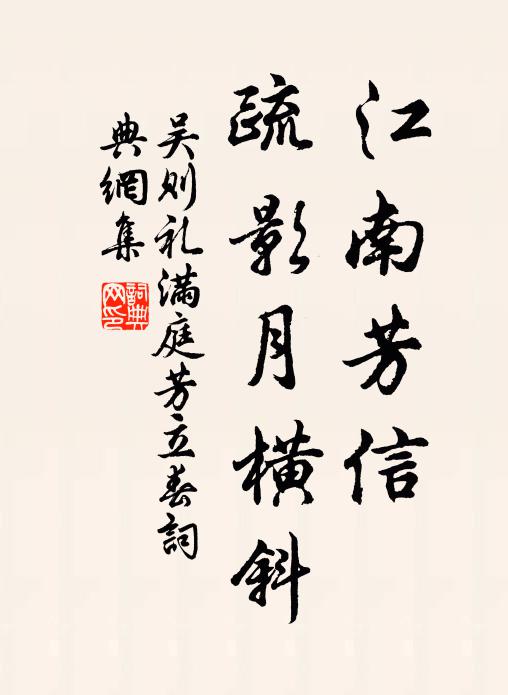 江南芳信
疏影月横斜
吴则礼满庭芳立春詞
典網集
詞典网印